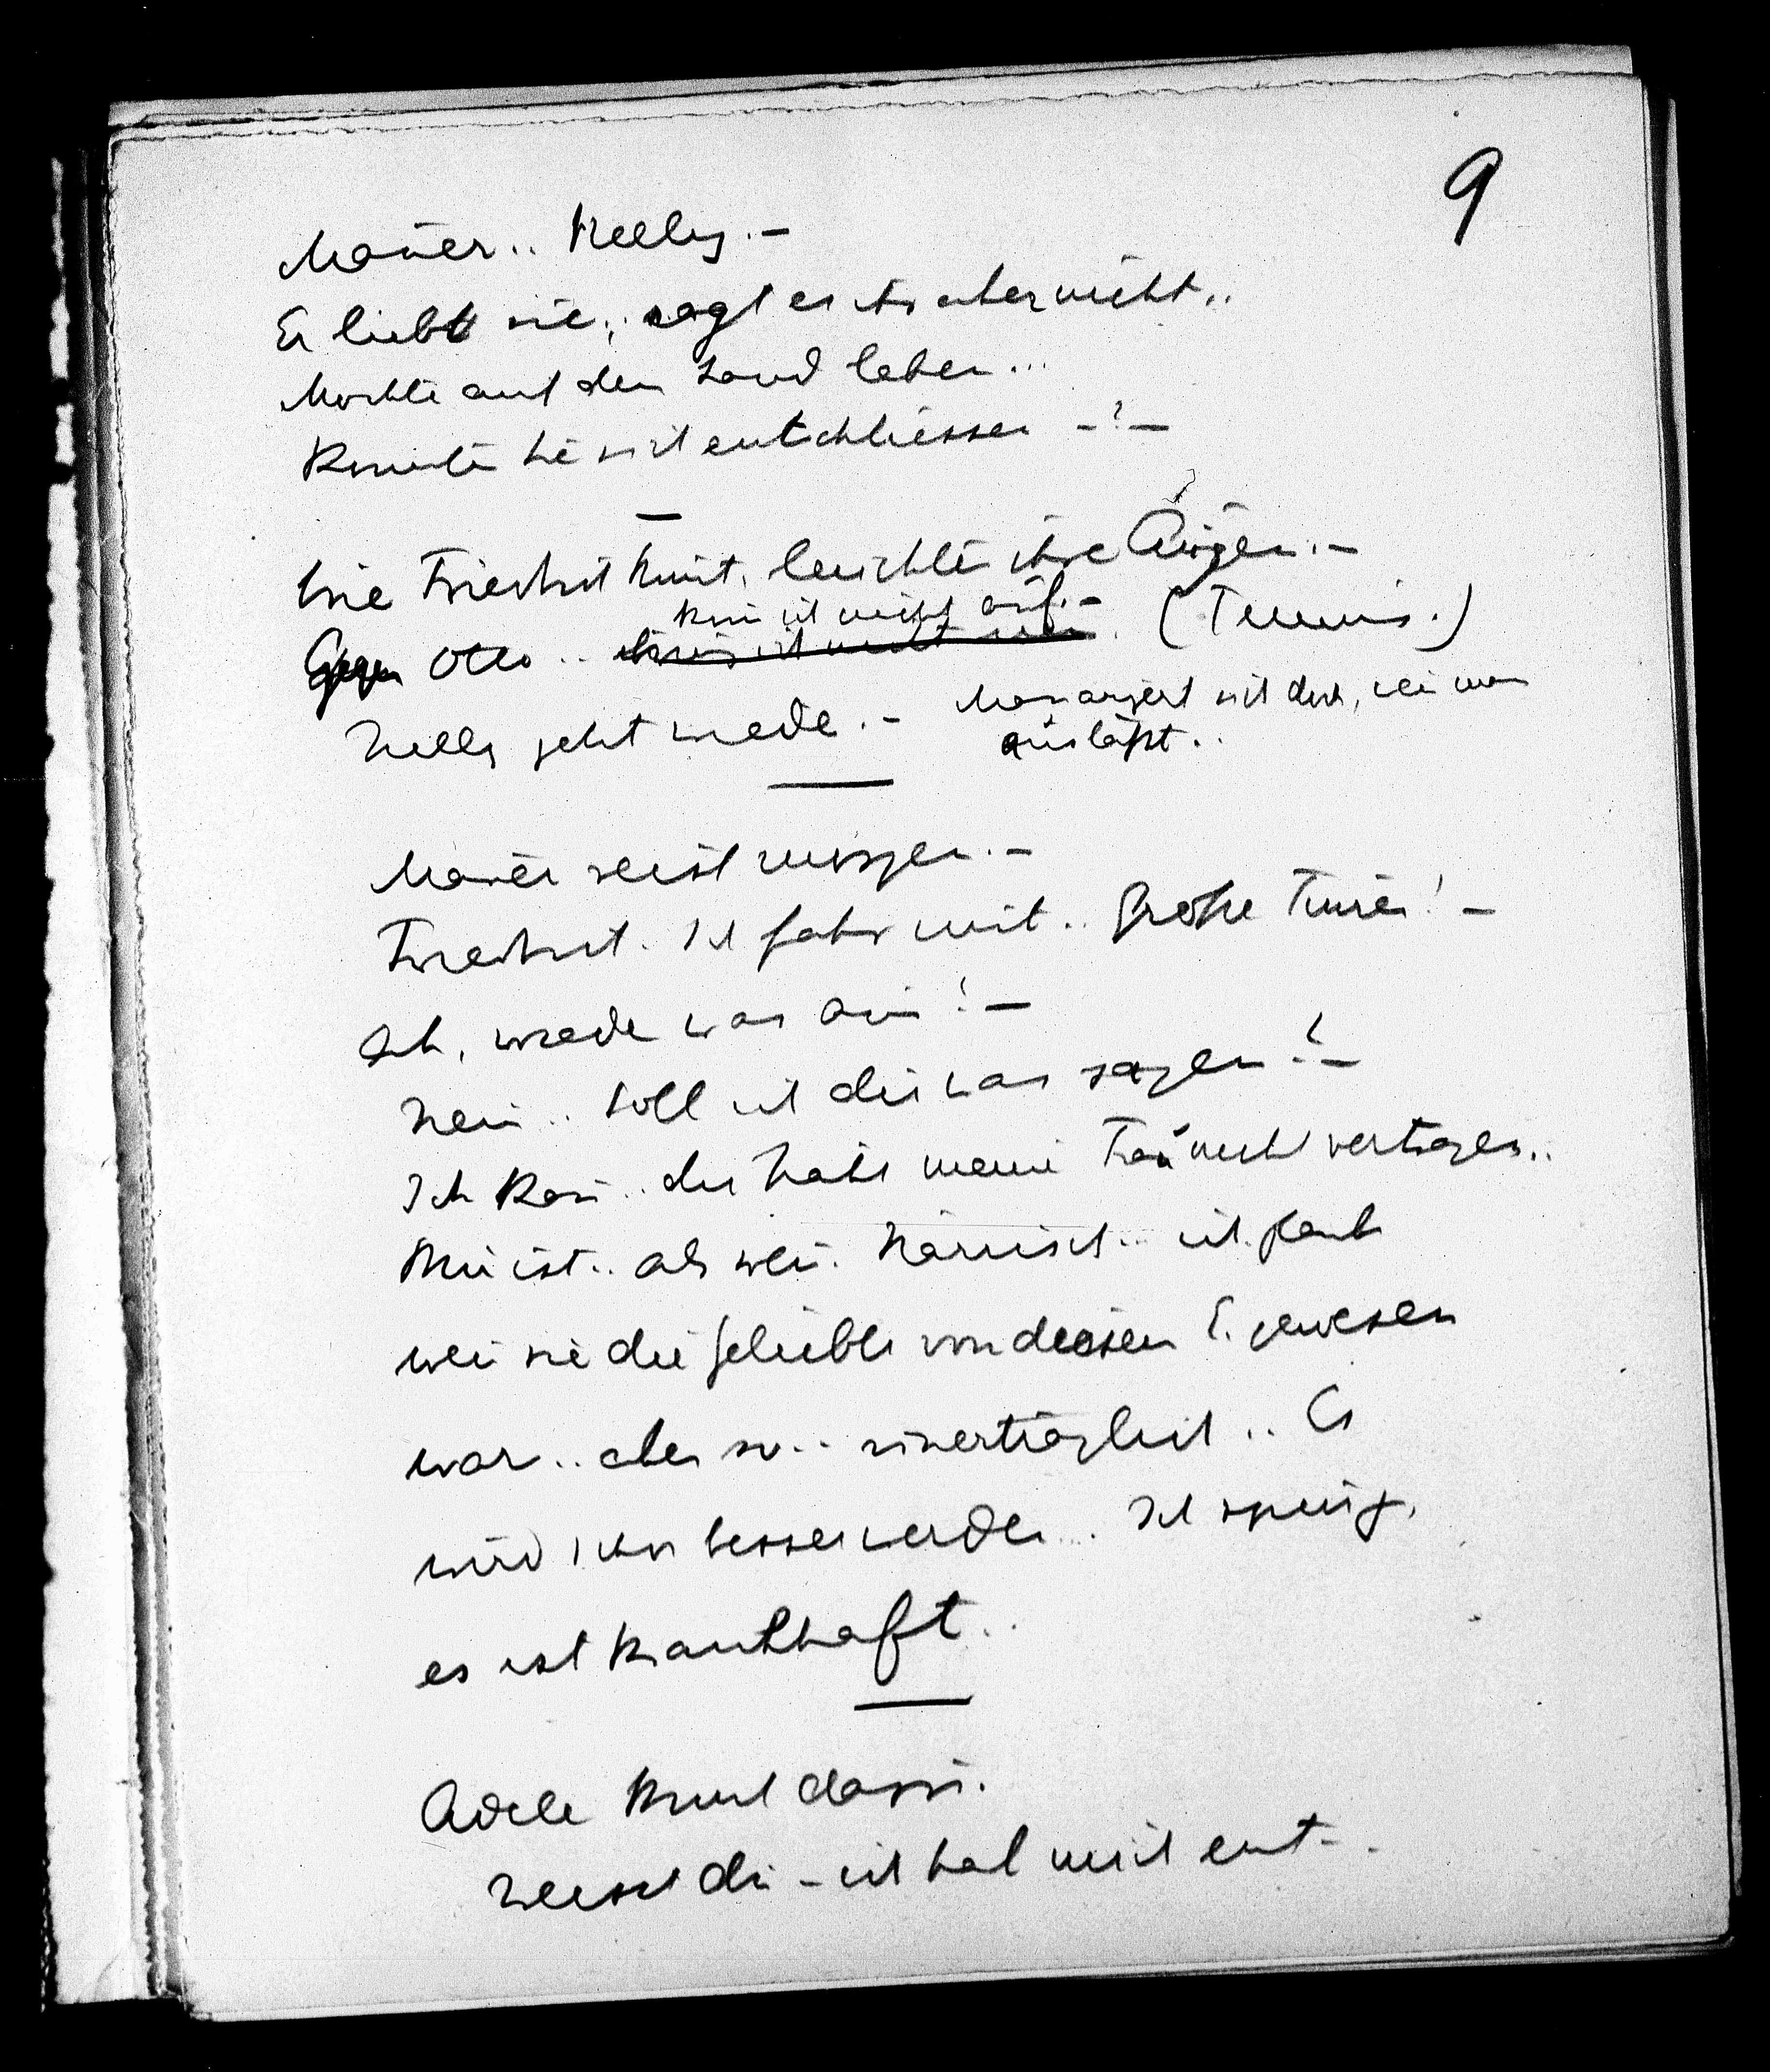 9
Mauer.. Nelly.–
Er liebt sie, sagt es ihr aber nicht..
Möchte auf dem Land leben...
Könnten Sie sich entschliessen –?–
Wie Friedrich kommt, leuchten ihre Augen.–
auf.–
Gegen Otto.. (Tennis.)
Nelly geht wieder.– Man ärgert sich doch, wenn man
ausläßt..
Mauer reist morgen.–
Friedrich. Ich fahr mit.. Große Touren!–
Ah, wieder was aus!–
Nein.. Soll ich dir was sagen?–
Ich kann.. die Nähe meiner Frau nicht vertragen..
Mir ist.. als wenn. Närrisch... ich glaub
wenn sie die Geliebte von diesem gewesen
wär.. aber so.. unerträglich.. Es
wird schon besser werden... Ich
es ist krankhaft..
Adele kommt dazu.
Weisst du – ich hab mich ent–.